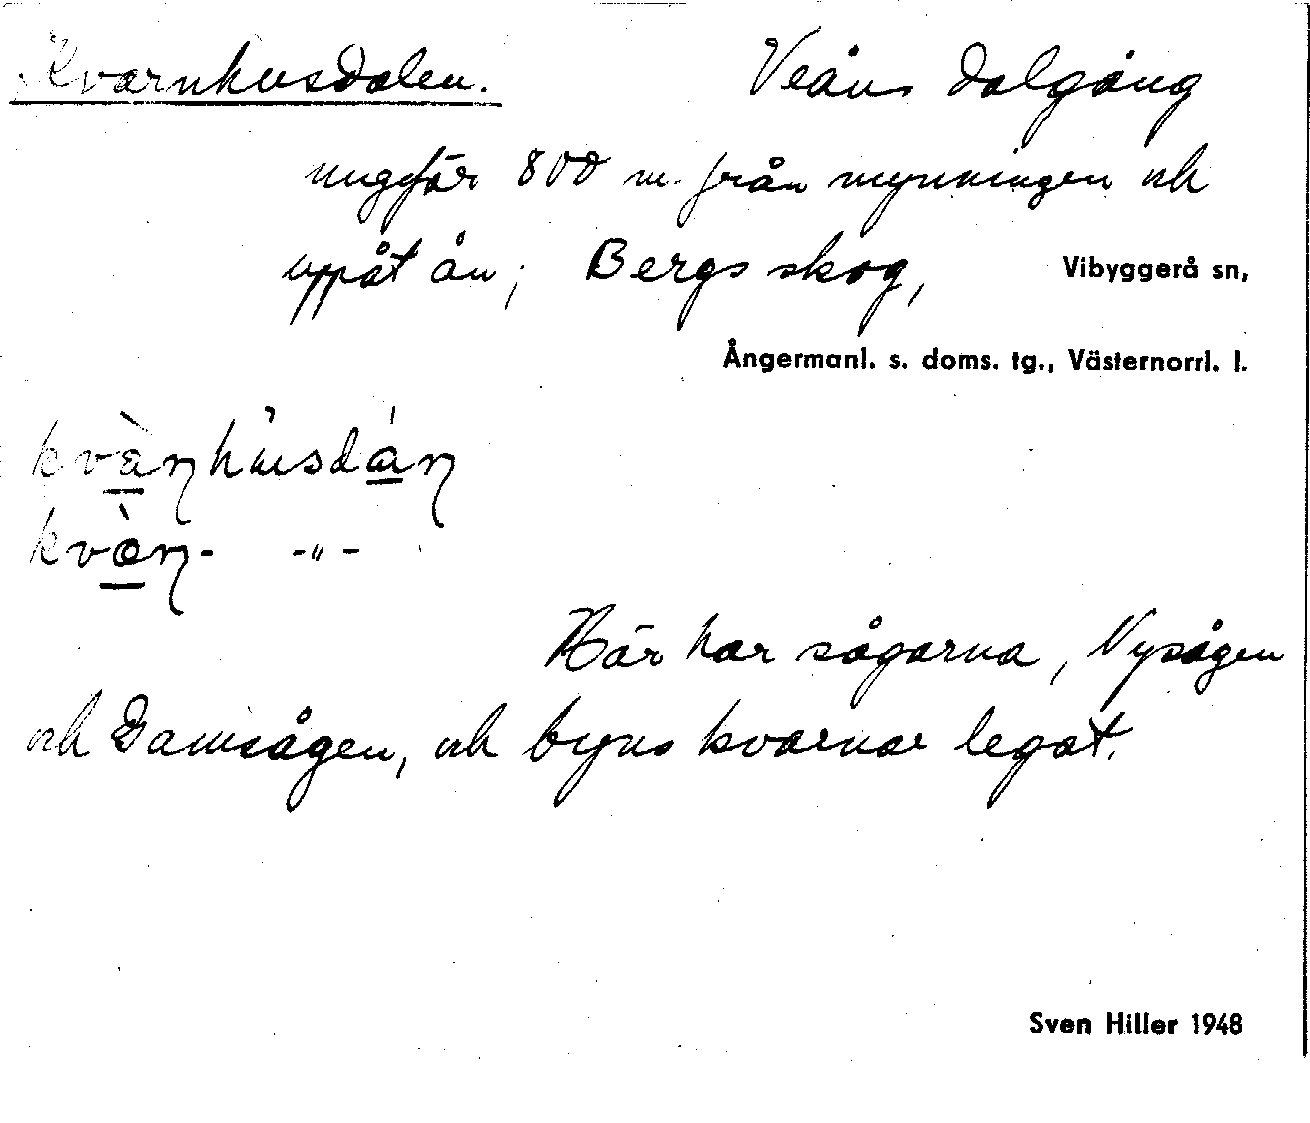 Kvarnhusdalen. Veåns dalgång
ungefär 800 m. från mynningen och
uppåt ån; Bergs skog, Vibyggerå sn,
Ångermanl. s. doms. tg., Västernorrl. l.
kvàɳhùsdáɳ
kvæ̀ɳ- -"-
Här har sågarna, Nysågen
och Damsågen, och byns kvarnar legat.
Sven Hiller 1948